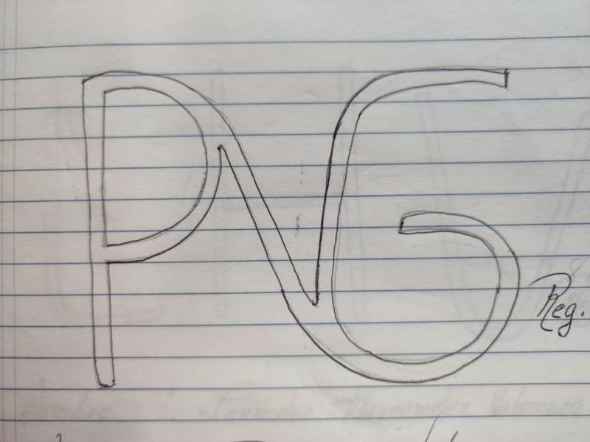 PNG
Reg.